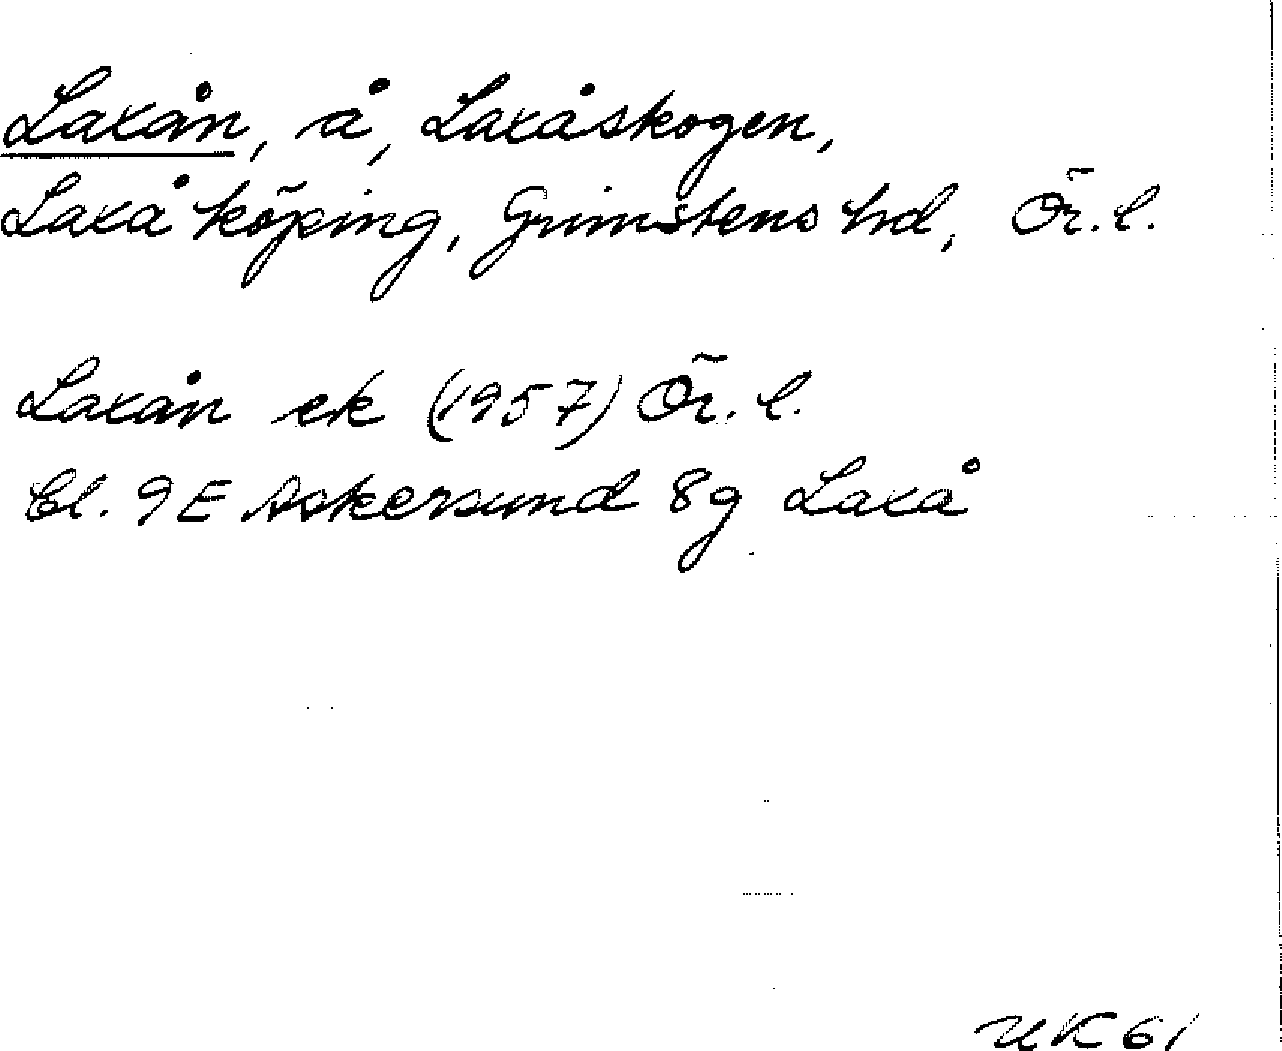 Laxån, å, Laxåskogen,
Laxå köping, Grimstens hd, Ör. l.
Laxån ek (1957) Ör. l.
bl. 9E Askersund 8g Laxå
UK 61